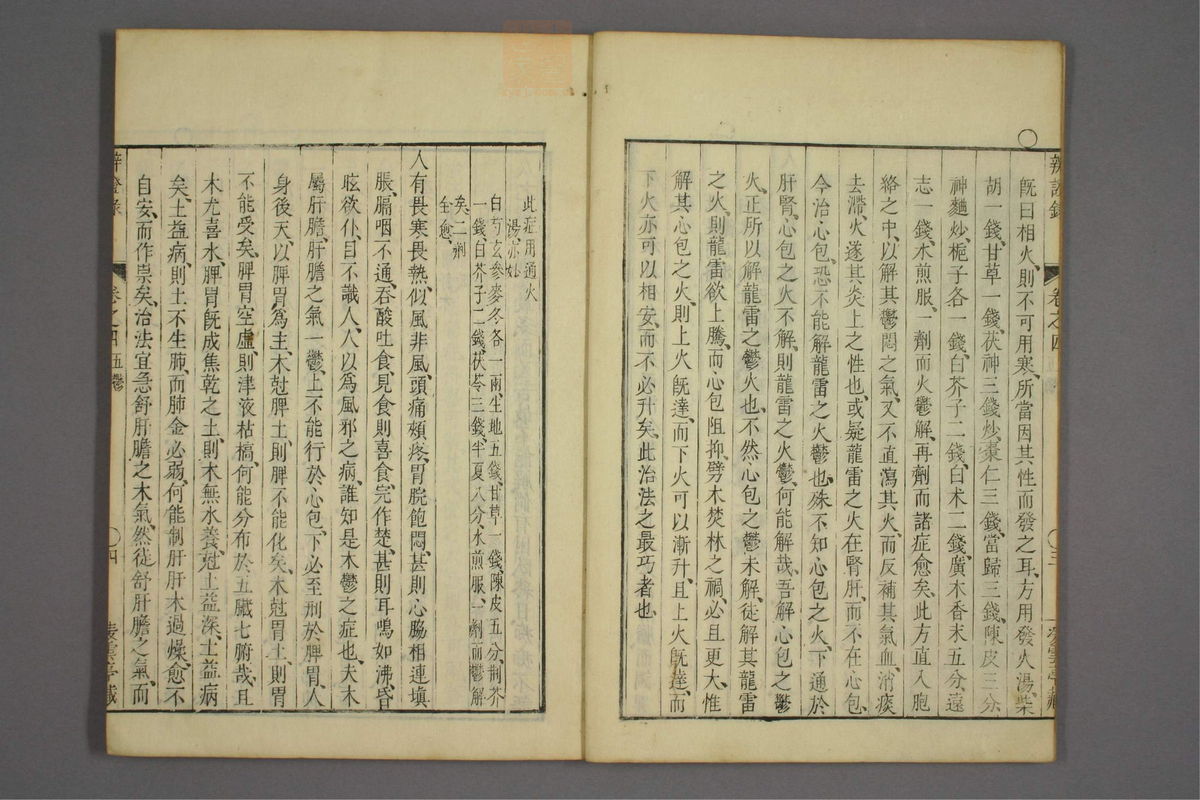 既曰相火則不可用寒、所當因其性而發之耳、方用發火湯柴
胡一錢、甘草一錢、茯神三錢、炒棗仁三錢、當歸三錢、陳皮三分、
神麯炒梔子各一錢、白芥子二錢、白术二錢、廣木香末五分、遠
志一錢、水煎服、一劑而火鬱解、再劑而諸症愈矣、此方直入胞
絡之中、以解其鬱悶之氣、又不直瀉其火、而反補其氣血、消痰
去滯火、遂其炎上之性也、或疑龍雷之火在腎肝、而不在心包、
今治心包、恐不能解龍雷之火鬱也、殊不知心包之火、下通於
肝腎、心包之火不解、則龍雷之火鬱、何能解哉、吾解心包之鬱
火、正所以解龍雷之鬱火也、不然心包之鬱未解、徒解其龍雷
之火、則龍雷欲上騰、而心包阻抑、劈木焚林之禍、必且更大、惟
解其心包之火、則上火既達、而下火可以漸升、且上火既達、而
下火亦可以相安、而不必升矣、此治法之最巧者也、
辨證錄 卷之四 三
此症用通火
湯亦妙
白芍玄參麥冬各一兩、生地五錢、甘草一錢、陳皮五分、荊芥
一錢、白芥子二錢、茯苓三錢、半夏八分、水煎服、一劑而鬱解
矣、二劑
全愈、
人有畏寒畏熱、似風非風、頭痛頰疼、胃脘飽悶、甚則心脇相連填
脹、膈咽不通、吞酸吐食、見食則喜、食完作楚、甚則耳鳴如沸、昏
眩欲仆、目不識人、人以為風邪之病、誰知是木鬱之症也、夫木
屬肝膽、肝膽之氣一鬱、上不能行於心包、下必至刑於脾胃、人
身後天、以脾胃為主、木尅脾土、則脾不能化矣、木尅胃土、則胃
不能受矣、脾胃空虛、則津液枯槁、何能分布於五臟七腑哉、且
木尤喜水、脾胃既成焦乾之土、則木無水養、尅土益深、土益病
矣、土益病、則土不生肺、而肺金必弱、何能制肝、肝木過燥、愈不
自安、而作祟矣、治法宜急舒肝膽之木氣、然徒舒肝膽之氣、而
卷之四 五鬱 四